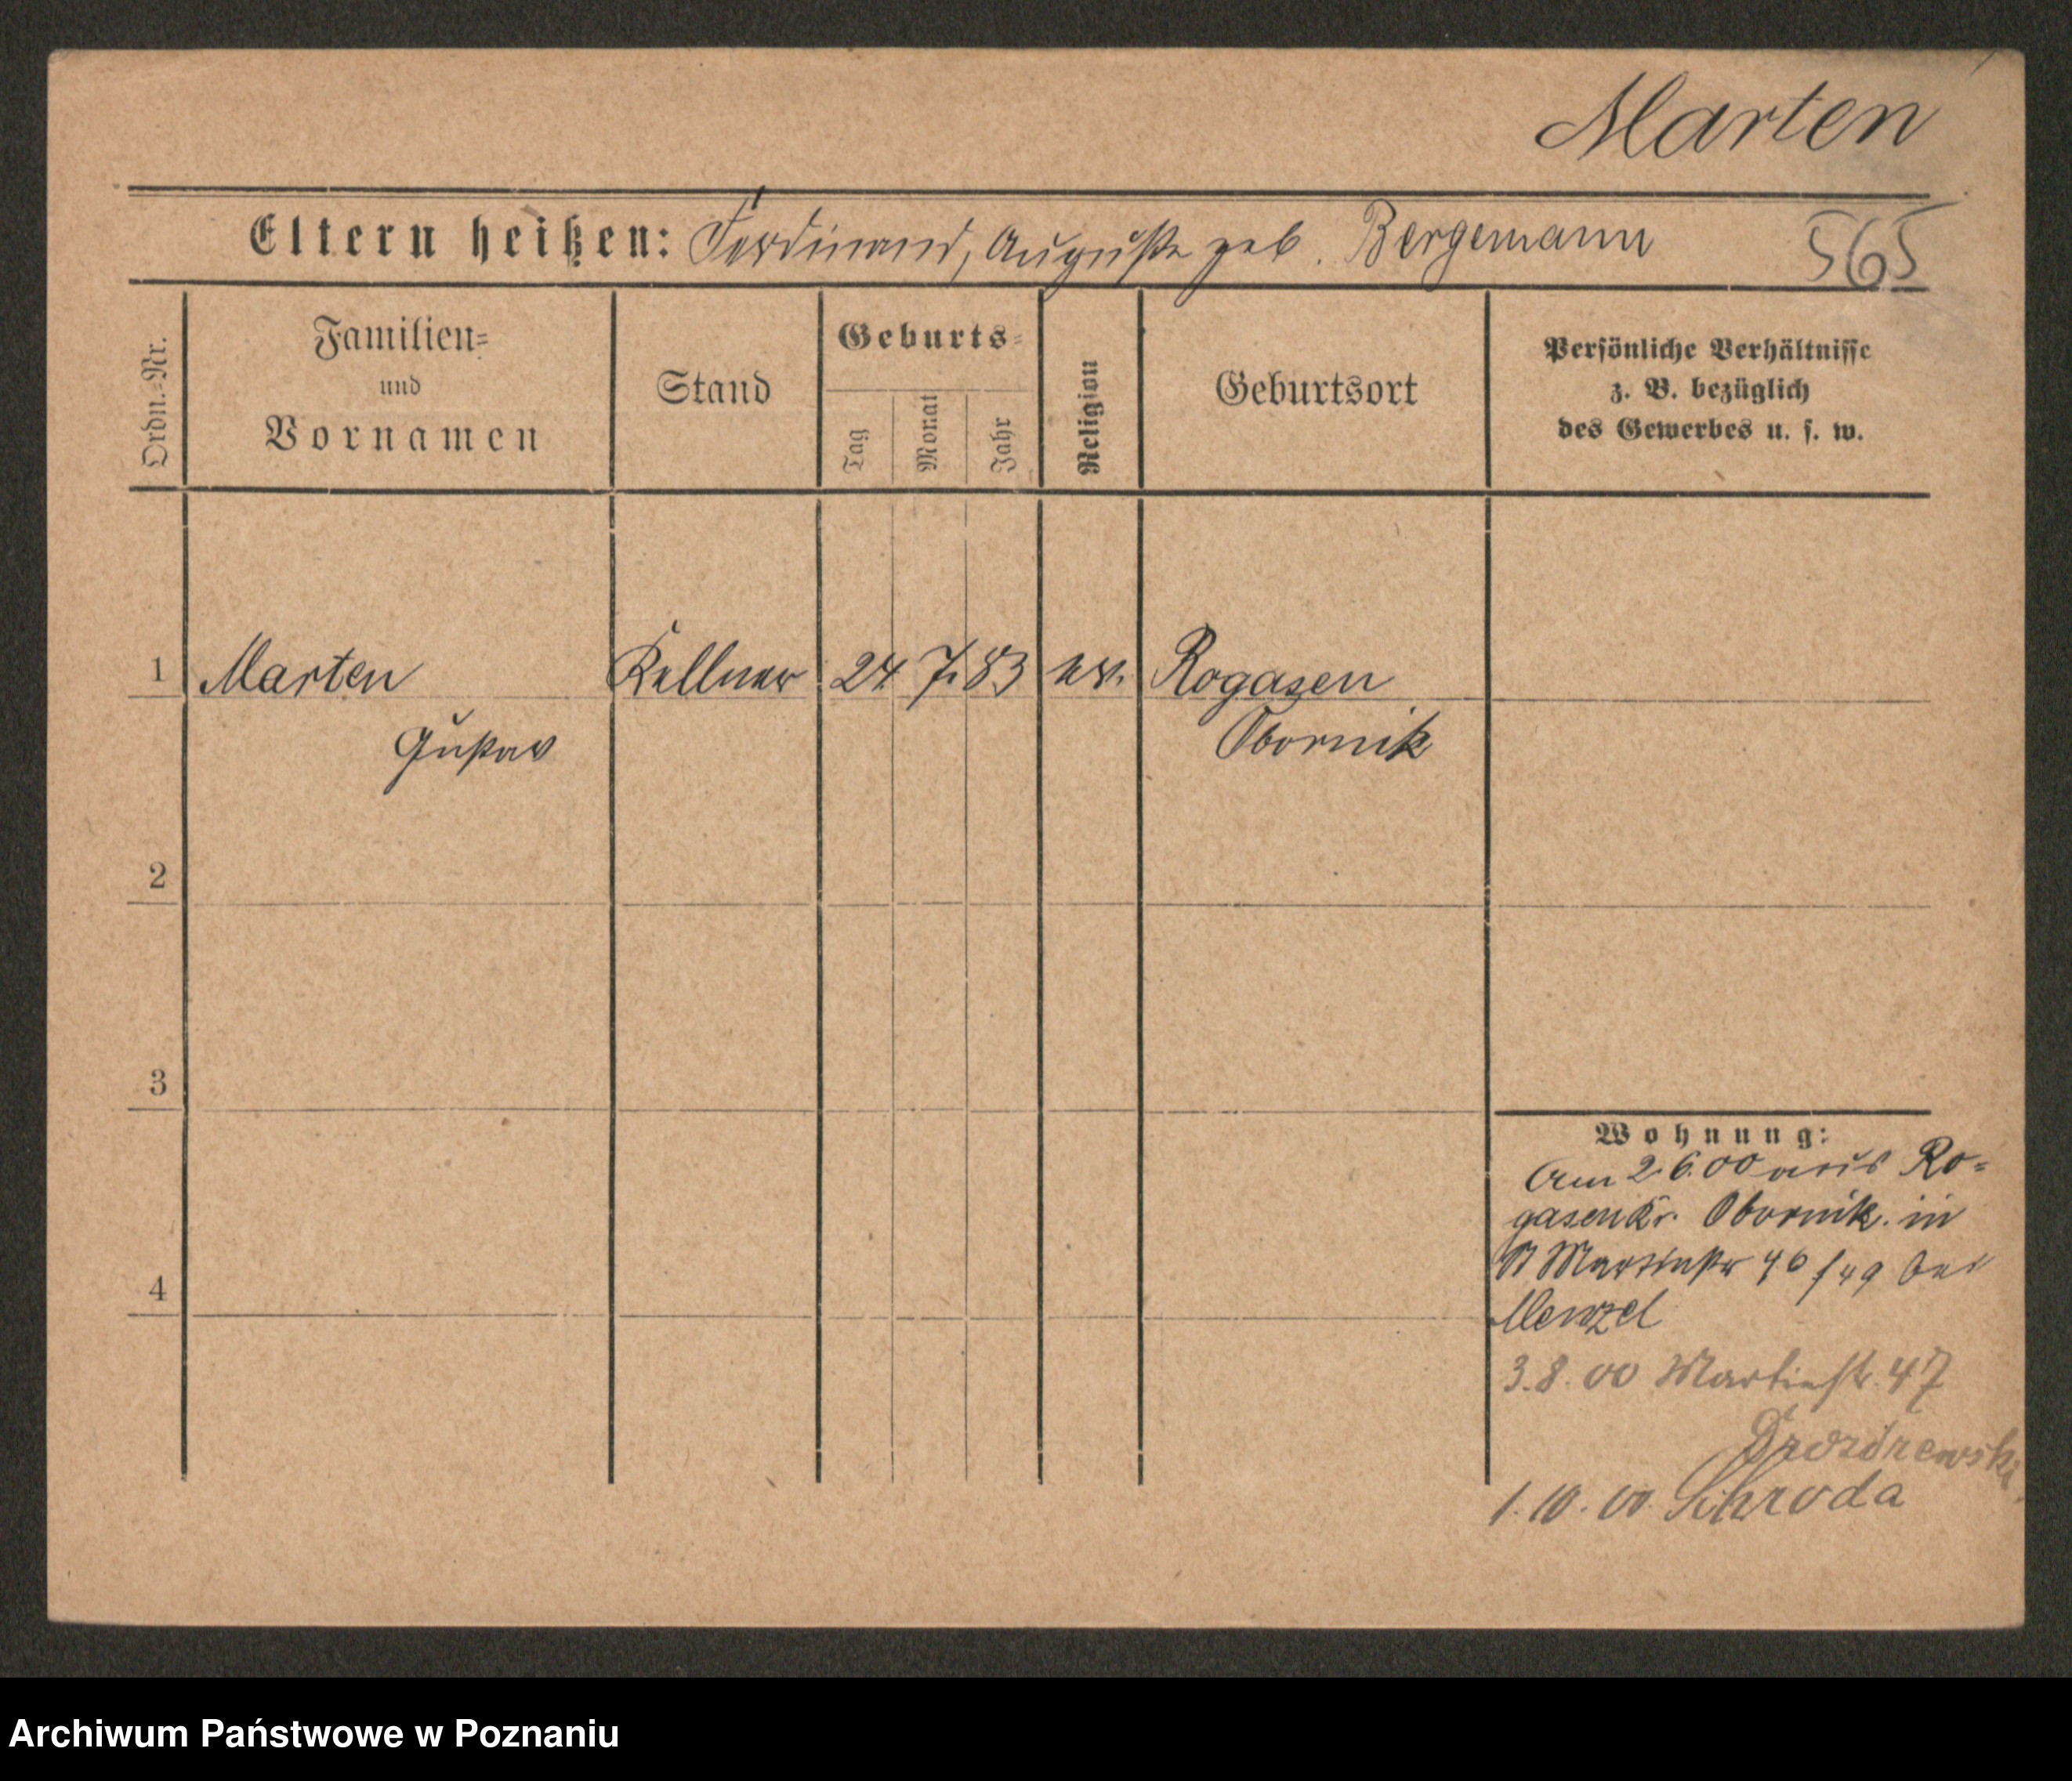 Marten
Eltern heißen: Ferdinand, Auguste geb. Bergemann 565
Ordn.-Nr.
Familien-
und
Vornamen
Stand
Geburts-
Tag
Monat
Jahr
Religion
Geburtsort
Persönliche Verhältnisse
z. B. bezüglich
des Gewerbes u. s. w.
1 Marten Kellner 24 7. 83 ev. Rogasen
Gustav Obornik
2
3
Wohnung:
Am 2.6.00 aus Ro-
gasen Kr. Obornik in
St Martinstr 46/49 bei
Menzel
4
3.8.00 Martinstr. 47
Drozdzewski
1.10.00 Schroda
Archiwum Państwowe w Poznaniu